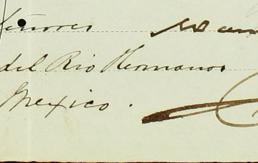 Señores
del Rio Hermanos
Mexico.